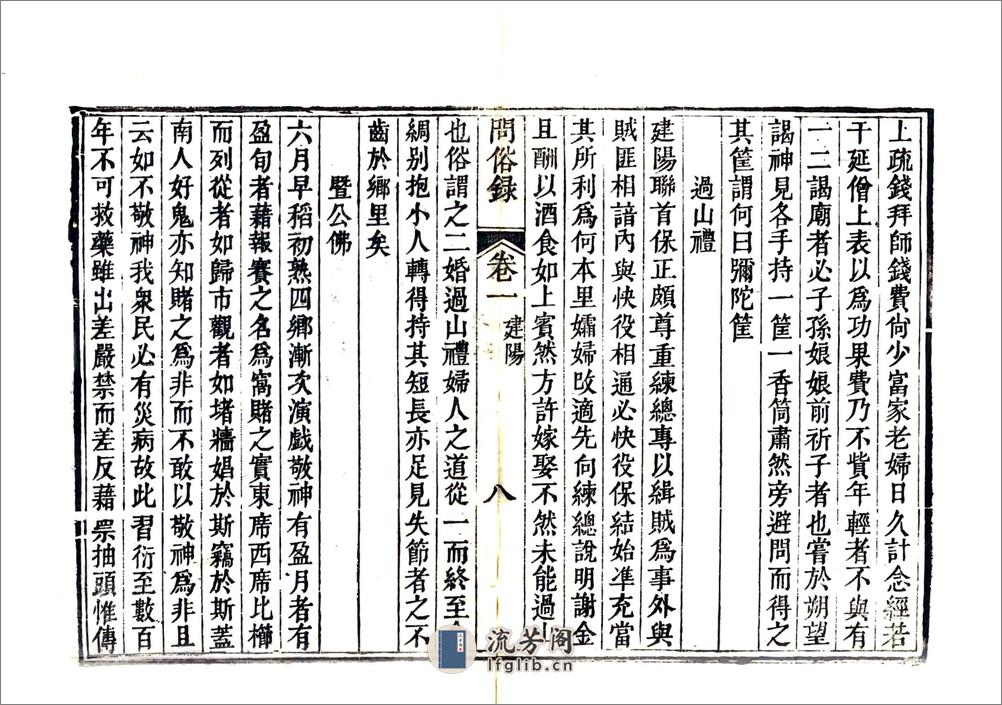 上疏錢拜師錢費尙少富家老婦日久計念經若
干延僧上表以爲功果費乃不貲年輕者不與有
一二謁廟者必子孫娘娘前祈子者也嘗於朔望
謁神見各手持一筐一香筒肅然旁避問而得之
其筐謂何曰彌陀筐
過山禮
建陽聯首保正頗尊重練總專以緝賊爲事外與
賊匪相諳內與快役相通必快役保結始準充當
其所利爲何本里孀婦改適先向練總說明謝金
且酬以酒食如上賓然方許嫁娶不然未能過山
問俗録 卷一 建陽 八
也俗謂之二婚過山禮婦人之道從一而終至
綢别抱小人轉得持其短長亦足見失節者之不
齒於鄉里矣
暨公佛
六月早稻初熟四鄉漸次演戲敬神有盈月者有
盈旬者藉報賽之名爲窩賭之實東席西席比櫛
而列從者如歸市觀者如堵牆娼於斯竊於斯蓋
南人好鬼亦知賭之爲非而不敢以敬神爲非且
云如不敬神我衆民必有災病故此習衍至數百
年不可救藥雖出差嚴禁而差反藉票抽頭惟傳
流芳阁
lfglib.cn